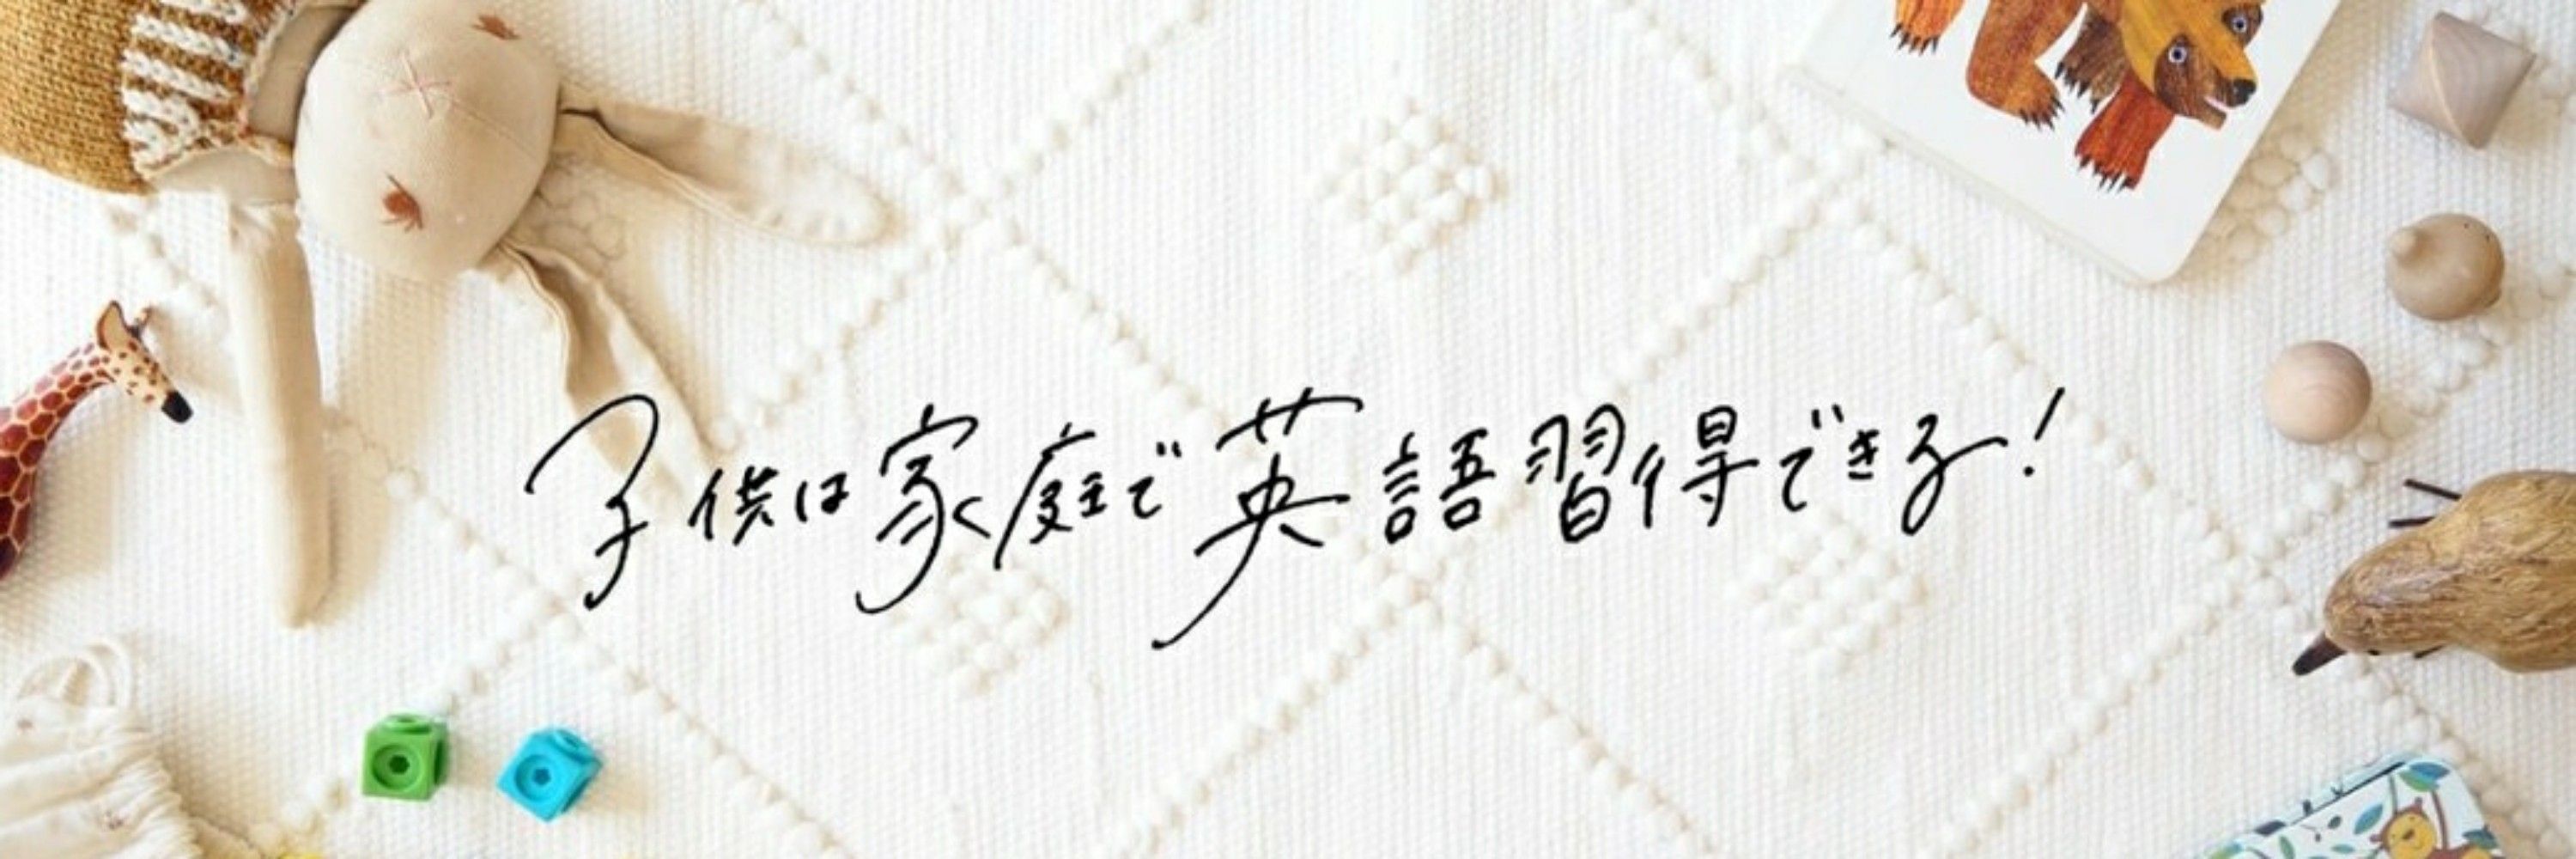 子供は家庭で英語習得できる!